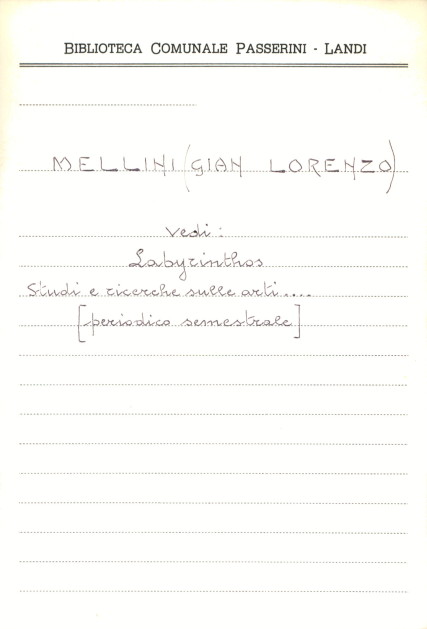 BIBLIOTECA COMUNALE PASSERINI - LANDI
MELLINI (GIAN LORENZO)
Vedi:
Labyrinthos
Studi e ricerche sulle arti....
[periodico semestrale]